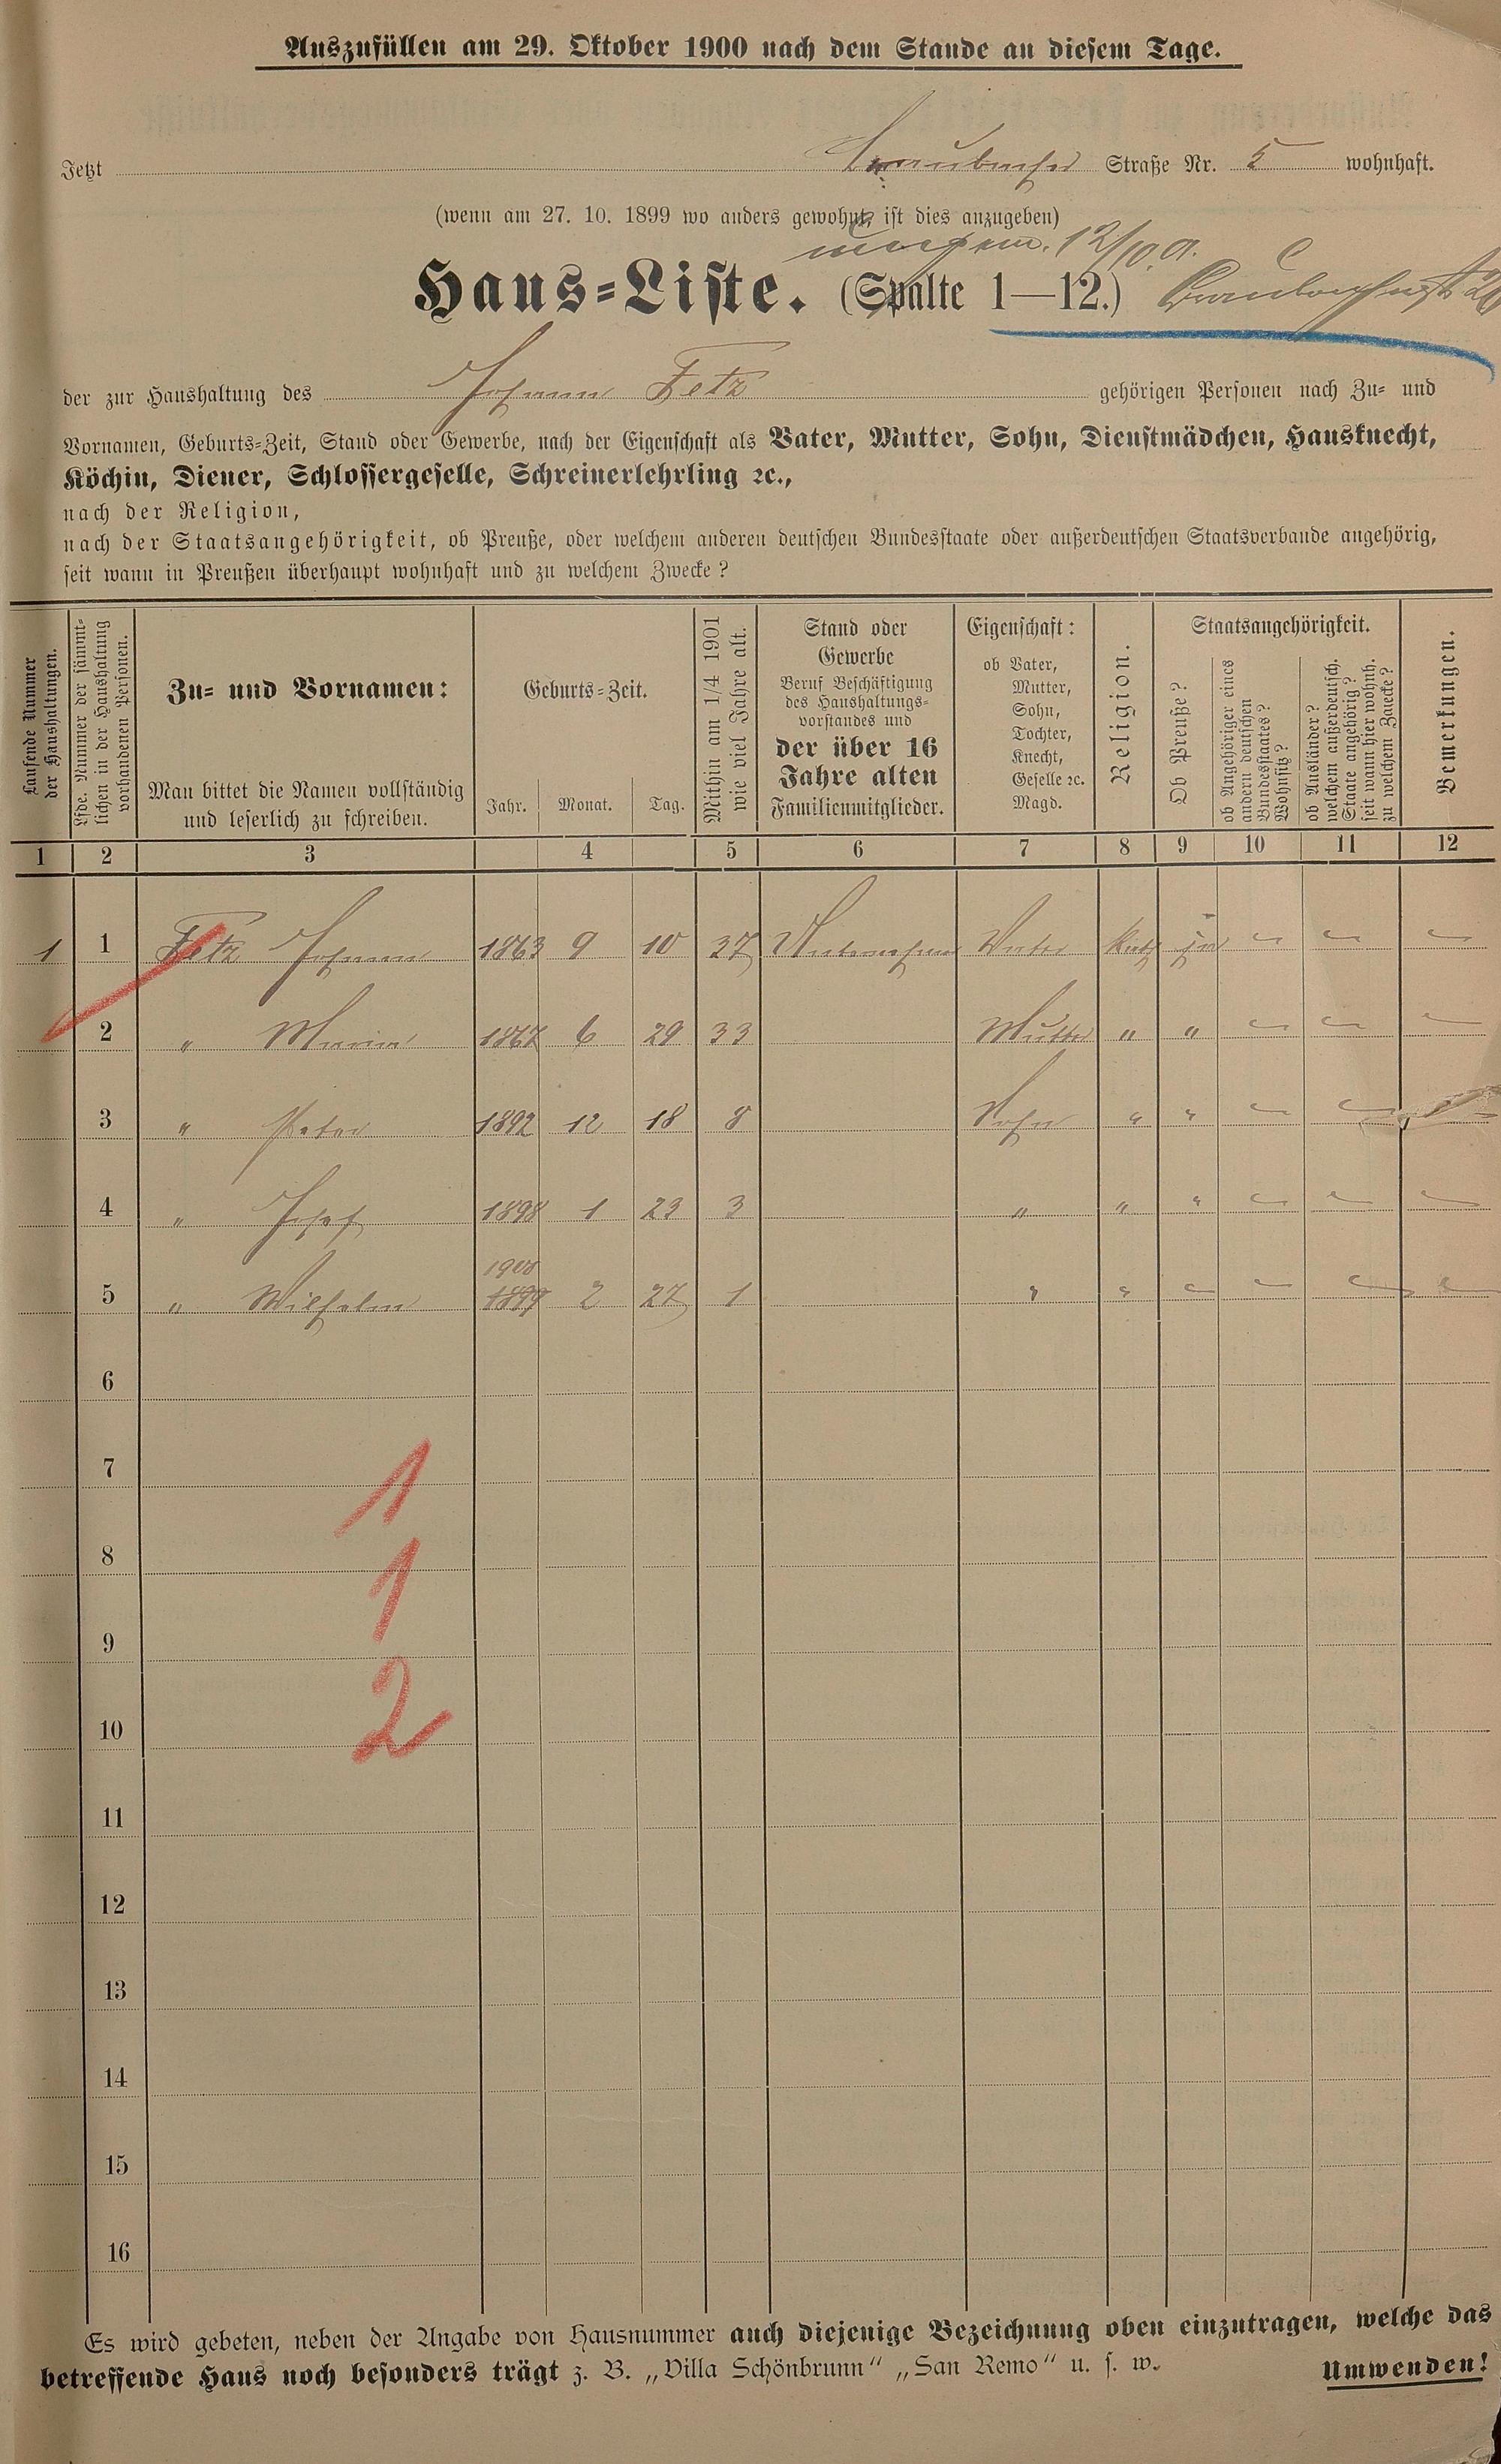 Auszufüllen am 29. Oktober 1900 nach dem Stande an diesem Tage.
Jetzt Straße Nr. 5 wohnhaft.
(wenn am 27. 10. 1899 wo anders gewohnt, ist dies anzugeben)
12/10.01.
Haus-Liste. (Spalte 1—12.)
der zur Haushaltung des Johann Fetz gehörigen Personen nach Zu- und
Vornamen, Geburts-Zeit, Stand oder Gewerbe, nach der Eigenschaft als Vater, Mutter, Sohn, Dienstmädchen, Hausknecht,
Köchin, Diener, Schlossergeselle, Schreinerlehrling ꝛc.,
nach der Religion,
nach der Staatsangehörigkeit, ob Preuße, oder welchem anderen deutschen Bundesstaate oder außerdeutschen Staatsverbande angehörig,
seit wann in Preußen überhaupt wohnhaft und zu welchem Zwecke?
Laufende Nummer
der Haushaltungen.
Lfde. Nummer der sämmt-
lichen in der Haushaltung
vorhandenen Personen.
Zu- und Vornamen:
Man bittet die Namen vollständig
und leserlich zu schreiben.
Geburts-Zeit.
Jahr. Monat. Tag.
Mithin am 1/4 1901
wie viel Jahre alt.
Stand oder
Gewerbe
Beruf Beschäftigung
des Haushaltungs-
vorstandes und
der über 16
Jahre alten
Familienmitglieder.
Eigenschaft:
ob Vater,
Mutter,
Sohn,
Tochter,
Knecht,
Geselle ꝛc.
Magd.
Religion.
Staatsangehörigkeit.
Ob Preuße?
ob Angehöriger eines
andern deutschen
Bundesstaates?
Wohnsitz?
ob Ausländer?
welchem außerdeutsch.
Staate angehörig?
seit wann hier wohnh.
zu welchem Zwecke?
Bemerkungen.
1 2 3 4 5 6 7 8 9 10 11 12
1 1 Fetz Johann 1863 9 10 37 Vater Kath ja
2 " Maria 1867 6 29 33 Mutter " "
3 " Peter 1892 12 18 8 Sohn " "
4 " Josef 1898 1 23 3 " " "
1900
5 " Wilhelm 1899 2 27 1 " "
6
7
1
8
1
9
2
10
11
12
13
14
15
16
Es wird gebeten, neben der Angabe von Hausnummer auch diejenige Bezeichnung oben einzutragen, welche das
betreffende Haus noch besonders trägt z. B. „Villa Schönbrunn“ „San Remo“ u. s. w. Umwenden!